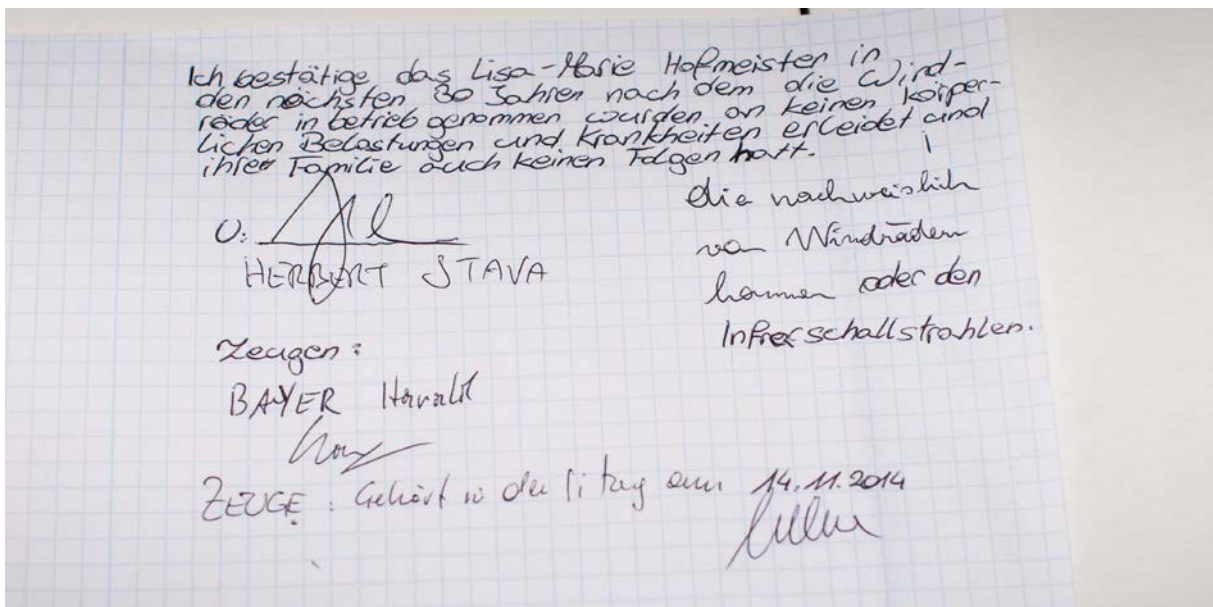 Ich bestätige das Lisa-Marie Hofmeister in
den nächsten 30 Jahren nach dem die Wind-
räder in betrieb genommen wurden an keinen körper-
lichen Belastungen und Krankheiten erleidet und
ihrer Familie auch keinen Folgen hatt.
die nachweislich
von Windrädern
kommen oder den
Infraschallstrahlen.
U:
HERBERT STAVA
Zeugen:
BAYER Harald
ZEUGE: Gehört in der Sitzung am 14.11.2014